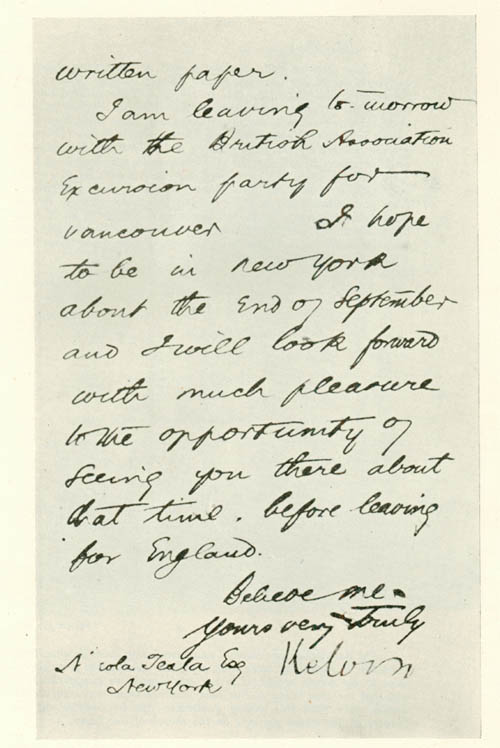 written paper.
I am leaving to-morrow
with the British Association
Excursion party for
Vancouver I hope
to be in New York
about the End of September
and I will look forward
with much pleasure
to the opportunity of
seeing you there about
that time. before leaving
for England.
Believe me.
Yours very truly
Kelvin
Nicola Tesla Esq
New York